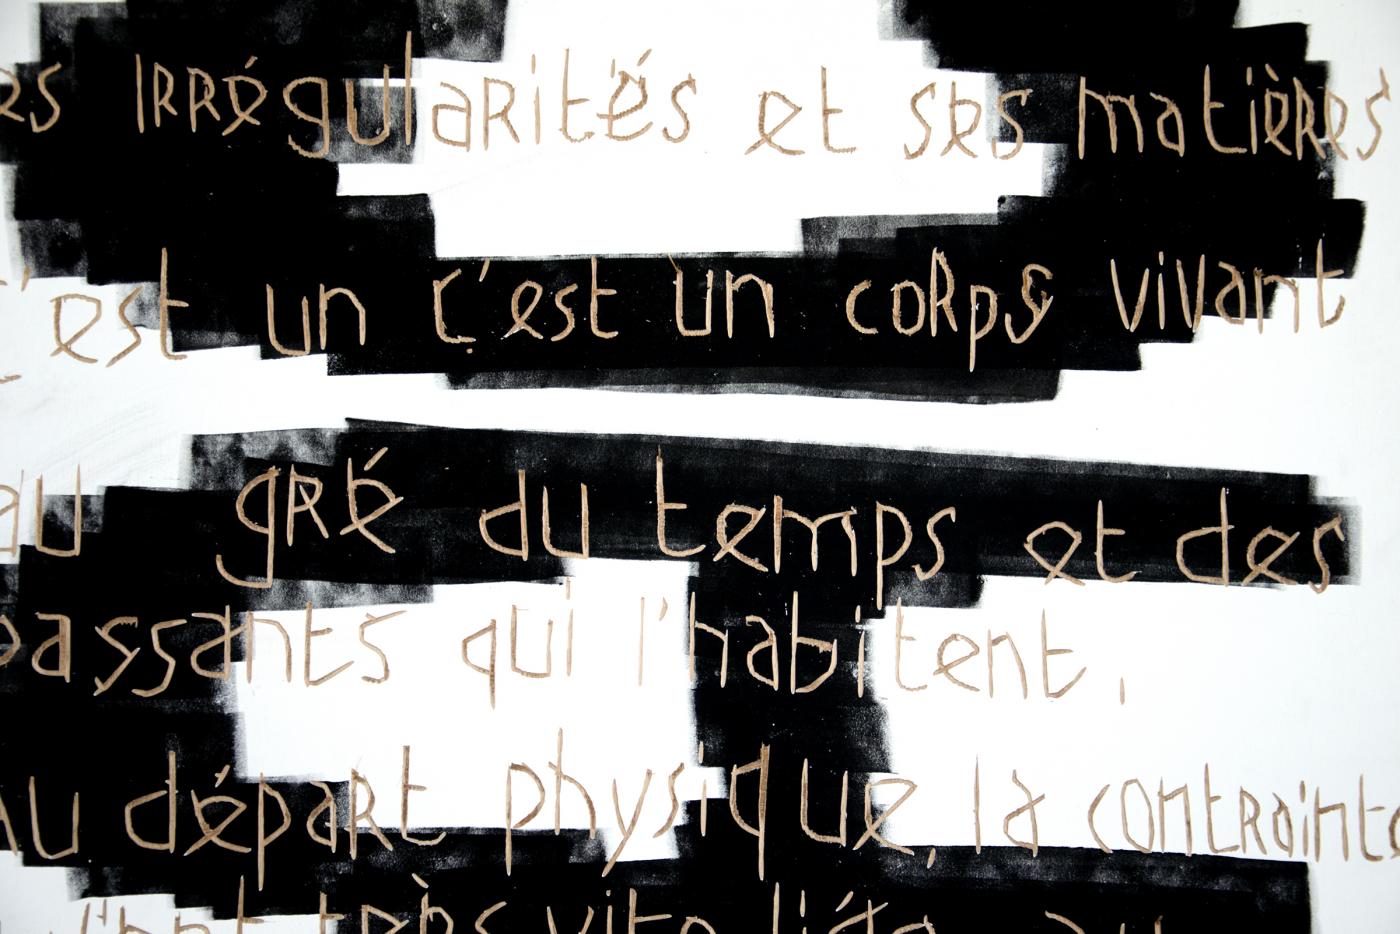 es irrégularités et ses matières
c'est un c'est un corps vivant
au gré du temps et des
passants qui l'habitent.
Au départ physique, la contrainte
très vite